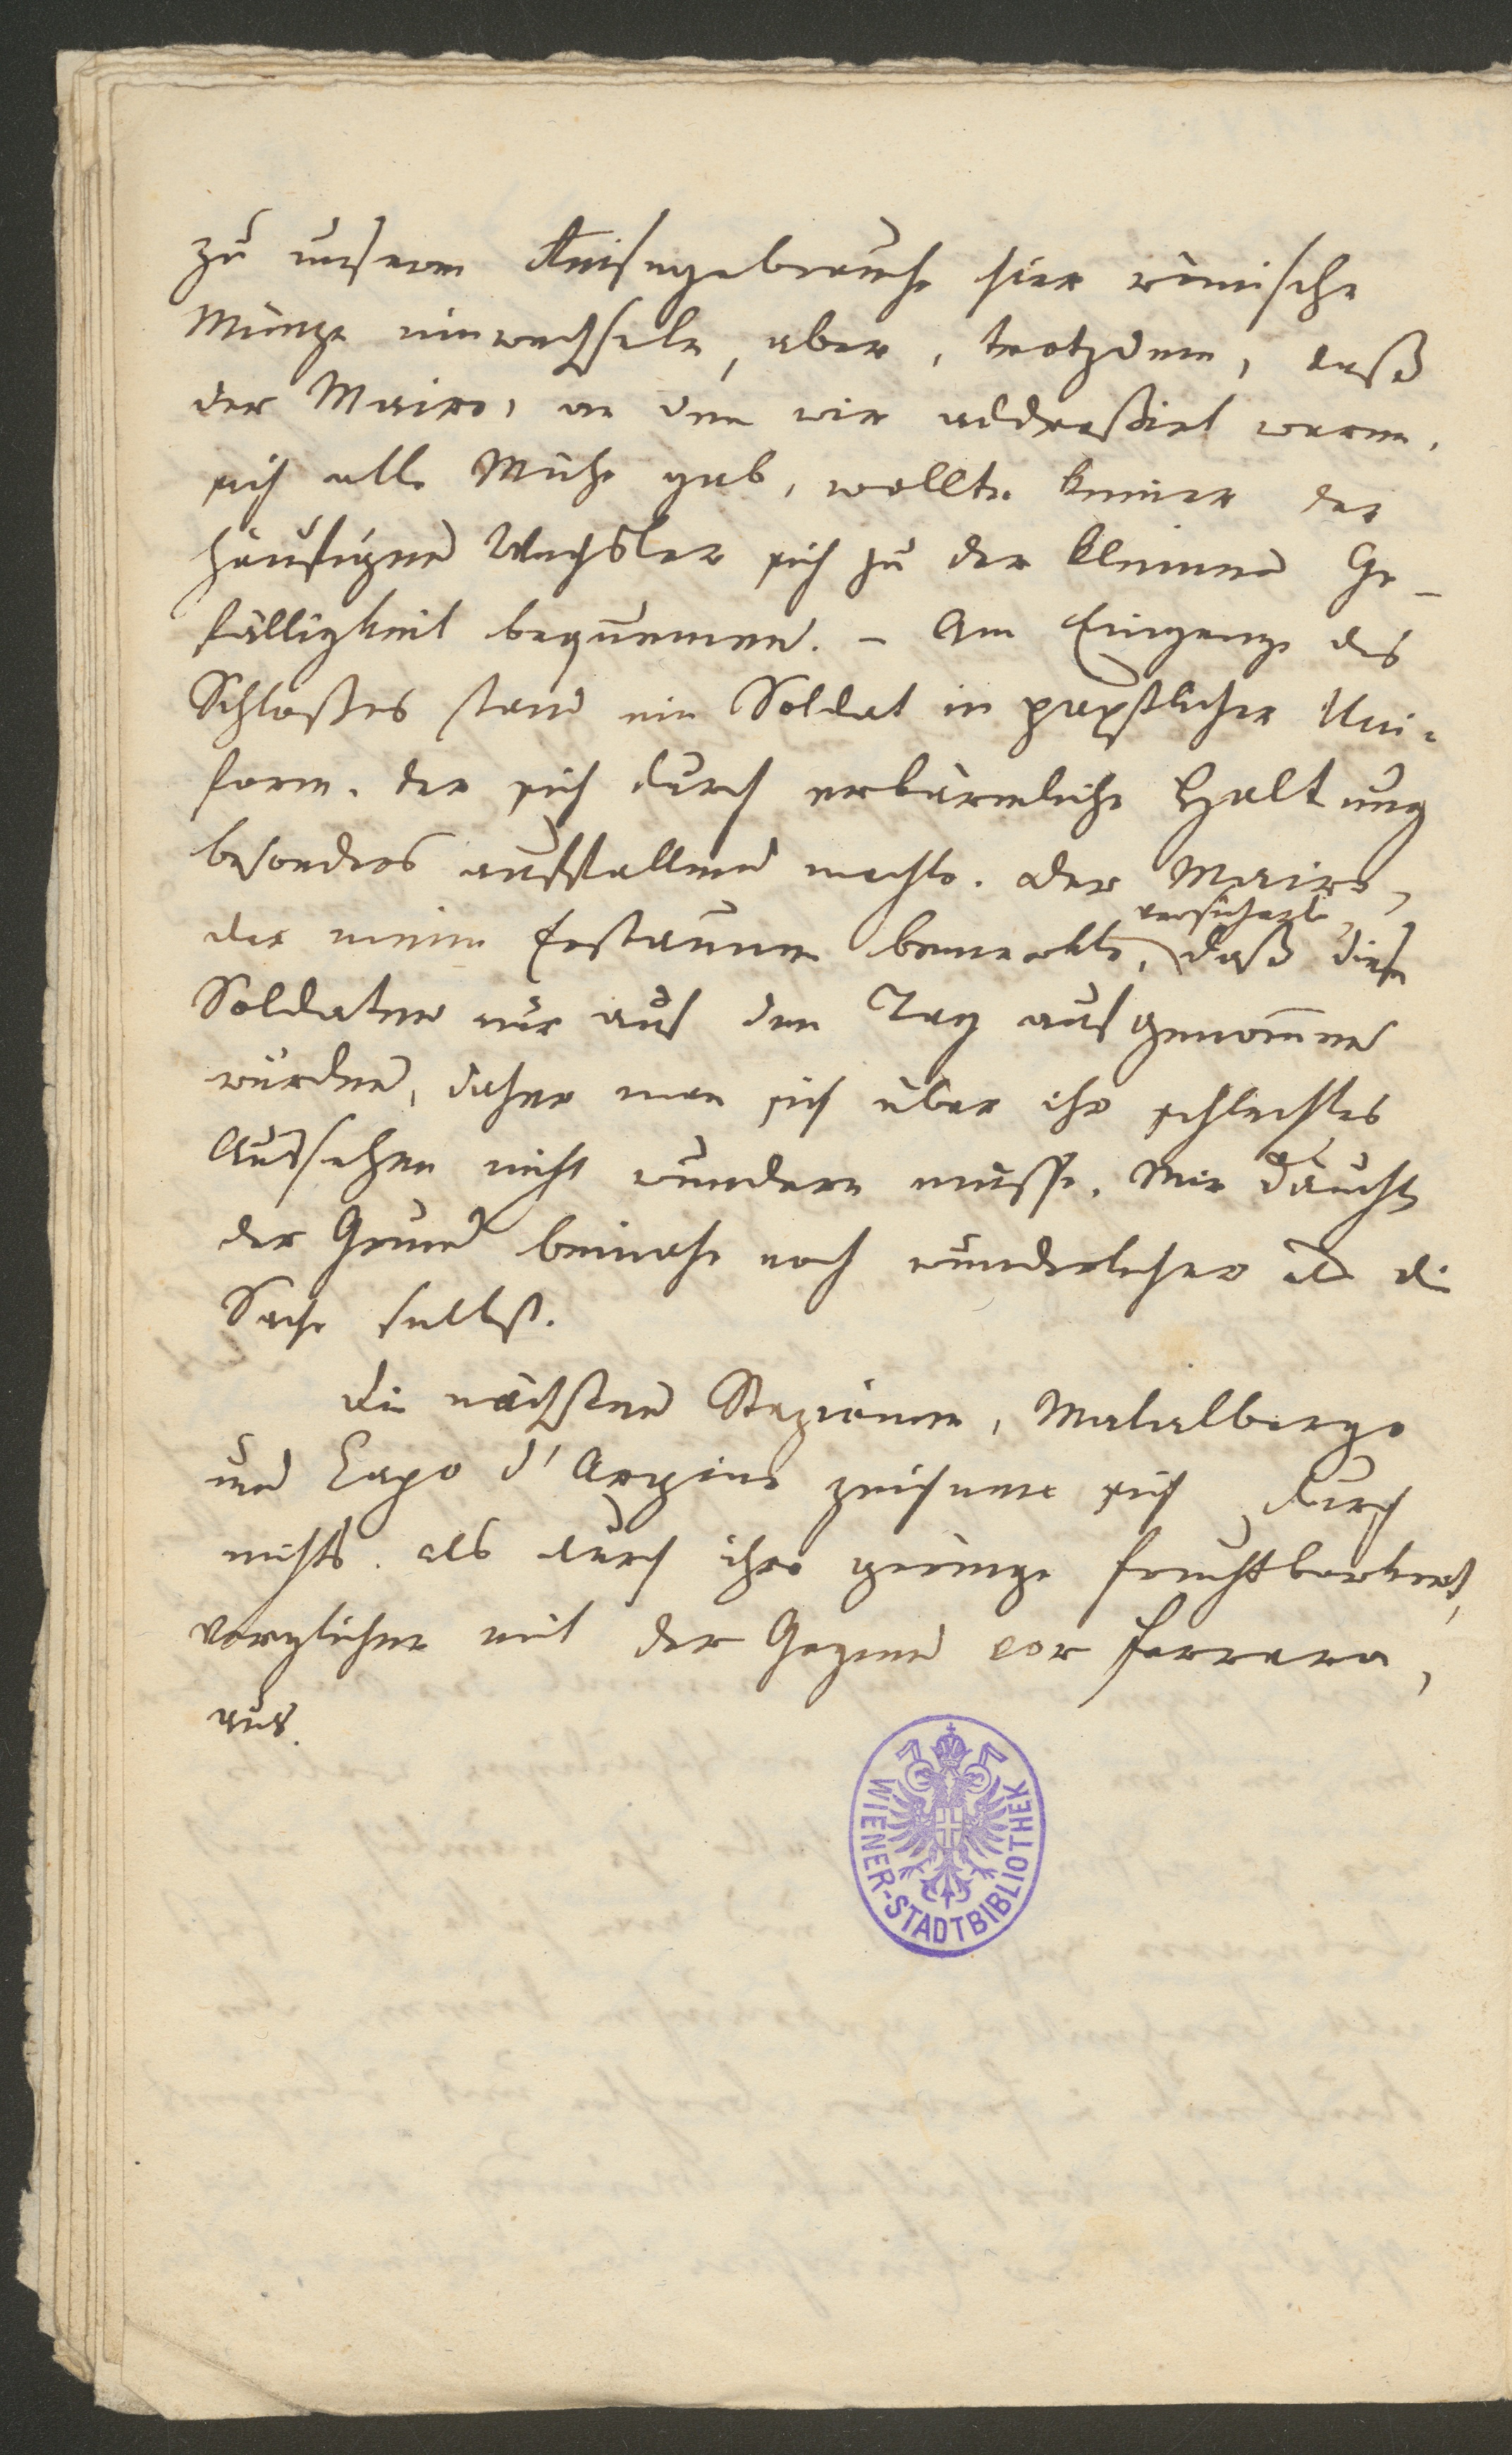 zu unserem Reisegebrauche hier römische
Münze einwechseln, aber, trotzdem, daß
der Maire, an den wir addressirt waren,
sich alle Mühe gab, wollte keiner der
häufigen Wechsler sich zu der kleinen Ge-
fälligkeit bequemen. – Am Eingange des
Schloßes stand ein Soldat in papstlicher Uni-
form, der sich durch erbärmliche Haltung
besonders auffallend machte. Der Maire,
der meine Erstaunen bemerkte, versicherte, daß diese
Soldaten nur auf den Tag aufgenom̅en
würden, daher man sich über ihr schlechtes
Aussehen nicht wundern müsse. Mir däucht
der Grund beinahe noch wunderlicher als die
Sache selbst.
Die nächsten Stazionen, Malalbergo
und Capo d'Argine zeichnen sich durch
nichts als durch ihre geringe Fruchtbarkeit,
verglichen mit der Gegend vor Ferrara,
aus.
WIENER-STADTBIBLIOTHEK